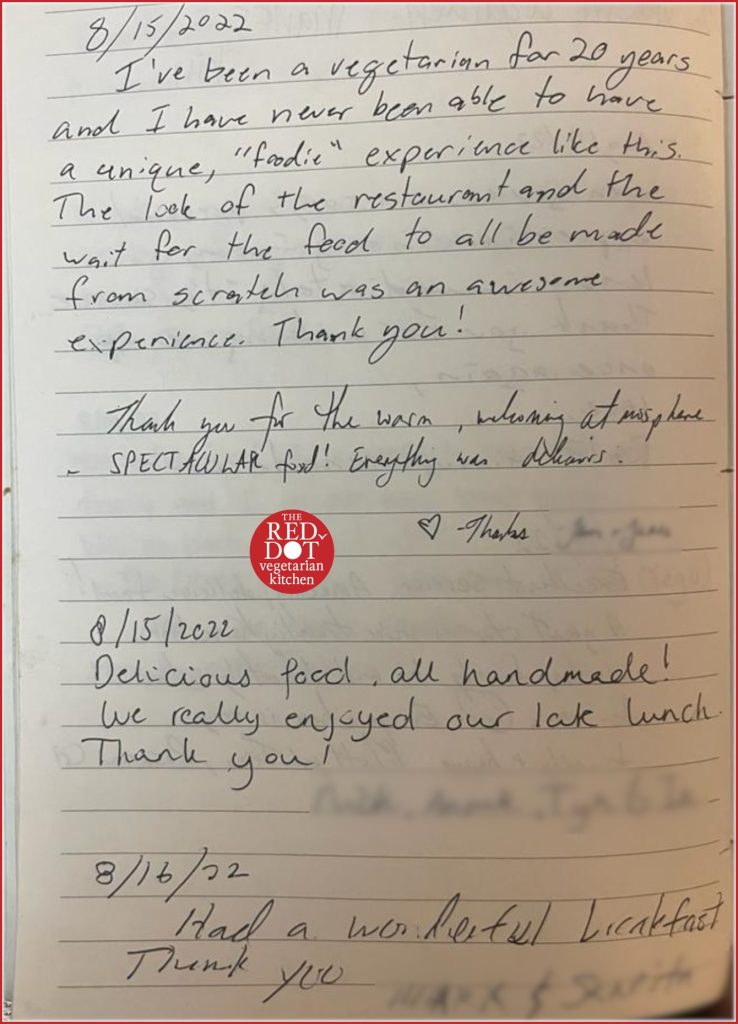 8/15/2022
I've been a vegetarian for 20 years
and I have never been able to have
a unique, "foodie" experience like this.
The look of the restaurant and the
wait for the food to all be made
from scratch was an awesome
experience. Thank you!
Thank you for the warm, welcoming atmosphere
- SPECTACULAR food! Everything was delicious.
♡ -Thanks
THE
RED
DOT
vegetarian
kitchen
8/15/2022
Delicious food, all handmade!
We really enjoyed our late lunch.
Thank you!
8/16/22
Had a wonderful breakfast
Thank you